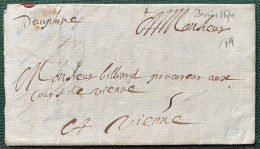 Dauphine
A Monsieur
Monsieur billiard procureur aux
cours de vienne
5
A Vienne